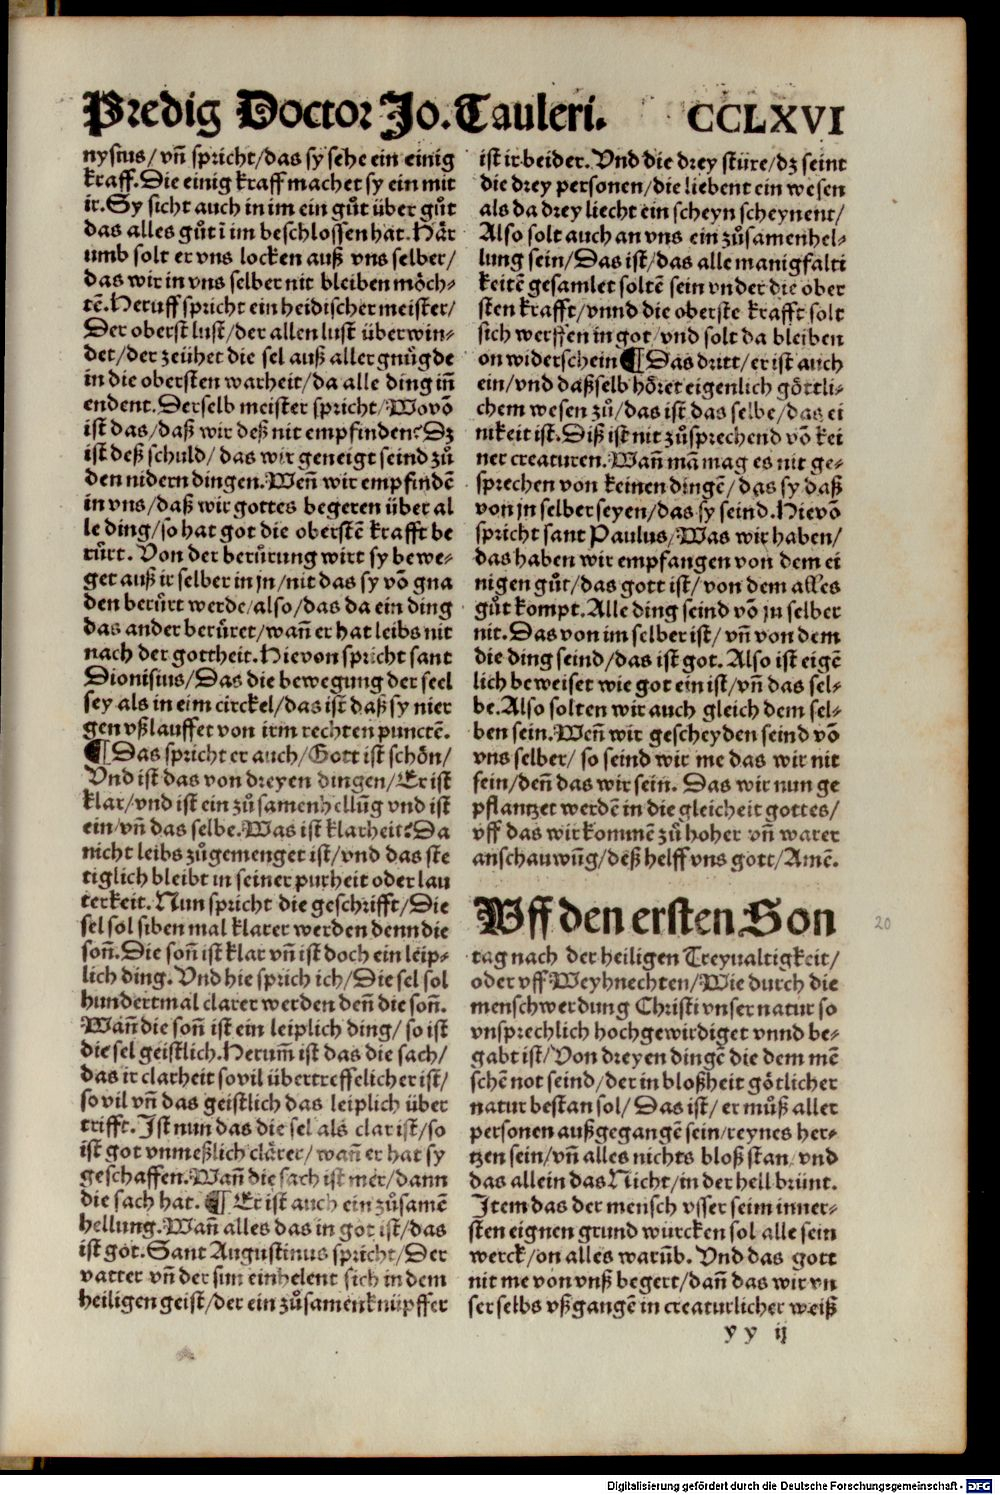 Predig Doctor Jo. Tauleri. CCLXVI
nysius/ vñ spricht/das sy sehe ein einig
krafft. Die einig krafft machet sy ein mit
ir. Sy sicht auch in im ein gůt über gůt
das alles gůt ī im beschlossen hat. Här
umb solt er vns locken auß vns selber/
das wir in vns selber nit bleiben möch-
tē. Heruff spricht ein heidischer meister/
Der oberst lust/der allen lust überwin-
det/der zeühet die sel auß aller gnůgde
in die obersten warheit/da alle ding iñ
endent. Derselb meister spricht/Wovō
ist das/daß wir deß nit empfinden? Dz
ist deß schuld/ das wir geneigt seind zů
den nidern dingen. Weñ wir empfindē
in vns/daß wir gottes begeren über al
le ding/so hat got die oberstē krafft be
rürt. Von der berürung wirt sy bewe-
get auß ir selber in jn/nit das sy vō gna
den berürt werde/also/das da ein ding
das ander berüret/wañ er hat leibs nit
nach der gottheit. Hievon spricht sant
Dionisius/Das die bewegung der seel
sey als in eim circkel/das ist daß sy nier
gen vßlauffet von irm rechten punctē.
¶ Das spricht er auch/Gott ist schön/
Vnd ist das von dreyen dingen/Er ist
klar/vnd ist ein zůsamenhellūg vnd ist
ein/vñ das selbe. Was ist klarheit? Da
nicht leibs zůgemenget ist/vnd das ste
tiglich bleibt in seiner purheit oder lau
terkeit. Nun spricht die geschrifft/Die
sel sol siben mal klarer werden denn die
soñ. Die soñ ist klar vñ ist doch ein leip-
lich ding. Vnd hie sprich ich/Die sel sol
hundertmal clarer werden deñ die soñ.
Wañ die soñ ist ein leiplich ding/ so ist
die sel geistlich. Herum̄ ist das die sach/
das ir clarheit sovil übertreffelicher ist/
sovil vñ das geistlich das leiplich über
trifft. Ist nun das die sel als clar ist/so
ist got vnmeßlich clärer/ wañ er hat sy
geschaffen. Wañ die sach ist mer/dann
die sach hat. ¶ Er ist auch ein zůsamē
hellung. Wañ alles das in got ist/das
ist got. Sant Augustinus spricht/Der
vatter vñ der sun einhelent sich in dem
heiligen geist/der ein zůsamenknüpffer
ist ir beider. Vnd die drey stüre/dz seint
die drey personen/die liebent ein wesen
als da drey liecht ein scheyn scheynent/
Also solt auch an vns ein zůsamenhel-
lung sein/Das ist/das alle manigfalti
keitē gesamlet soltē sein vnder die ober
sten krafft/vnnd die oberste krafft solt
sich werffen in got/vnd solt da bleiben
on widerschein ¶ Das dritt/er ist auch
ein/vnd daßselb höret eigenlich göttli-
chem wesen zů/das ist das selbe/das ei
nikeit ist. Diß ist nit zůsprechend vō kei
ner creaturen. Wañ mā mag es nit ge-
sprechen von keinen dingē/das sy daß
von jn selber seyen/das sy seind. Hievō
spricht sant Paulus/Was wir haben/
das haben wir empfangen von dem ei
nigen gůt/das gott ist/von dem alles
gůt kompt. Alle ding seind vō jn selber
nit. Das von im selber ist/ vñ von dem
die ding seind/das ist got. Also ist eigē
lich beweiset wie got ein ist/vñ das sel-
be. Also solten wir auch gleich dem sel-
ben sein. Weñ wir gescheyden seind vō
vns selber/ so seind wir me das wir nit
sein/deñ das wir sein. Das wir nun ge
pflantzet werdē in die gleicheit gottes/
vff das wir kommē zů hoher vñ warer
anschauwūg/deß helff vns gott/Amē.
Vff den ersten Son
tag nach der heiligen Treyualtigkeit/
oder vff Weyhnechten/Wie durch die
menschwerdung Christi vnser natur so
vnsprechlich hochgewirdiget vnnd be-
gabt ist/Von dreyen dingē die dem mē
schē not seind/der in bloßheit götlicher
natur bestan sol/Das ist/ er můß aller
personen außgegangē sein/reynes her-
tzen sein/vñ alles nichts bloß stan/vnd
das allein das Nicht/in der hell brünt.
Item das der mensch vsser seim inner-
sten eignen grund würcken sol alle sein
werck/on alles warūb. Vnd das gott
nit me von vnß begert/dañ das wir vn
ser selbs vßgangē in creaturlicher weiß
y y ij
20
Digitalisierung gefördert durch die Deutsche Forschungsgemeinschaft - DFG